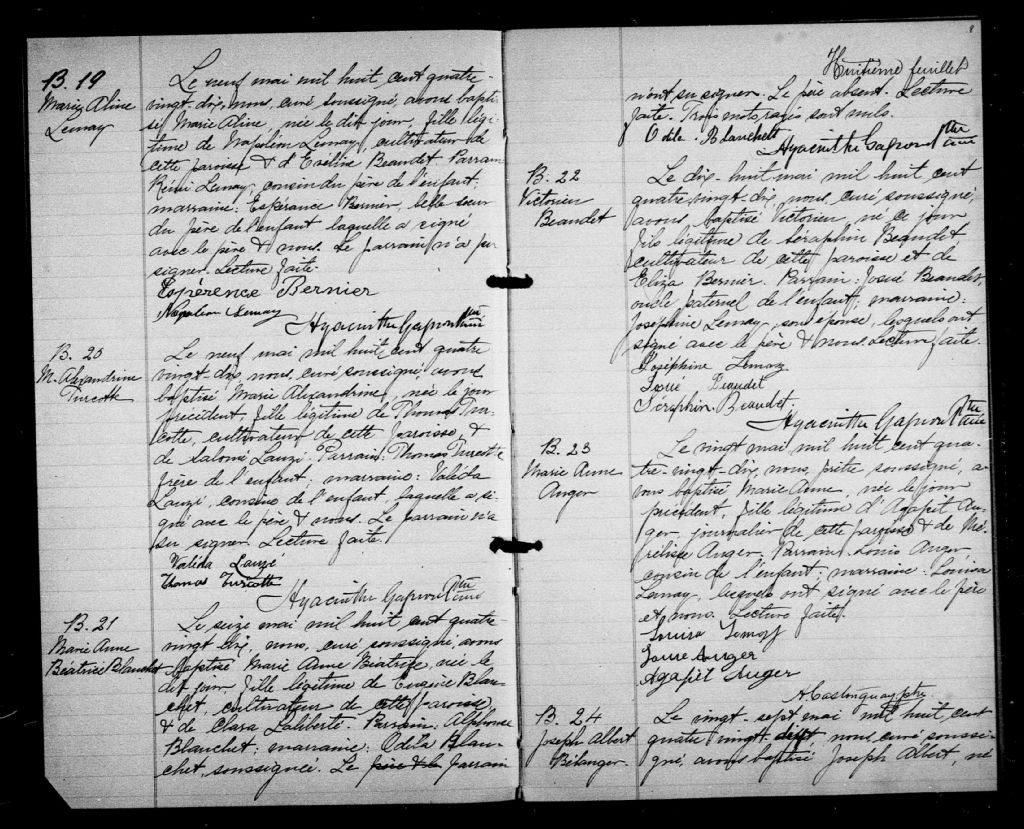 B. 19
Marie Aline
Lemay
Le neuf mai mil huit cent quatre-
vingt-dix, nous, curé soussigné, avons bapti-
sé Marie Aline née le dit jour, fille légi-
time de Napoléon Lemay, cultivateur de
cette paroisse & d'Eveline Beaudet Parrain
Rémi Lemay, cousin du père de l'enfant;
marraine: Espérance Bernier, belle sœur
du père de l'enfant laquelle a signé
avec le père & nous. Le parrain n'a pu
signer. Lecture faite.
Espérence Bernier
Napoléon Lemay
Hyacinthe Gagnon Ptre curé
B. 20
M. Alexandrine
Turcotte
Le neuf mai mil huit cent quatre
vingt-dix, nous, curé soussigné, avons
baptisé Marie Alexandrine, née le jour
précédent, fille légitime de Thomas Tur-
cotte, cultivateur de cette paroisse, &
de Salomé Lauzé. Parrain: Thomas Turcotte
frère de l'enfant; marraine: Valéda
Lauzé, cousine de l'enfant, laquelle a si-
gné avec le père & nous. Le parrain n'a
su signer. Lecture faite.
Valéda Lauzé
Thomas Turcotte
Hyacinthe Gagnon Ptre curé
B. 21
Marie Anne
Béatrice Blanchet
Le seize mai mil huit cent quatre-
vingt dix, nous, curé soussigné, avons
baptisé Marie Anne Béatrice, née le
dit jour, fille légitime de Eugène Blan-
chet, cultivateur de cette paroisse
& de Clara Laliberté. Parrain: Alphonse
Blanchet; marraine: Odila Blan-
chet, soussignée. Le père & le parrain
8
Huitième feuillet
n'ont su signer. Le père absent. Lecture
faite. Trois mots rayés sont nuls.
Odila Blanchett
Hyacinthe Gagnon Ptre curé
B. 22
Victorien
Beaudet
Le dix-huit mai mil huit cent
quatre vingt-dix, nous, curé soussigné,
avons baptisé Victorien, né ce jour
fils légitime de Séraphin Beaudet
cultivateur de cette paroisse et de
Eliza Bernier. Parrain: Josué Beaudet,
oncle paternel de l'enfant; marraine:
Joséphine Lemay, son épouse, lesquels ont
signé avec le père & nous. Lecture faite.
Joséphine Lemay
Josué Beaudet
Séraphin Beaudet
Hyacinthe Gagnon Ptre curé
B. 23
Marie Anne
Auger
Le vingt mai mil huit cent qua-
tre-vingt-dix, nous, prêtre soussigné, a-
vons baptisé Marie Anne, née le jour
précédent, fille légitime d'Agapit Au-
ger, journalier de cette paroisse & de Mé-
rélise Auger. Parrain: Louis Auger,
cousin de l'enfant; marraine: Louisa
Lemay, lesquels ont signé avec le père
et nous. Lecture faite.
Louisa Lemay
Louis Auger
Agapit Auger
Castonguay ptre
B. 24
Joseph Albert
Bélanger
Le vingt-sept mai mil huit cent
quatre vingt-dix nous, curé soussi-
gné, avons baptisé Joseph Albert, né